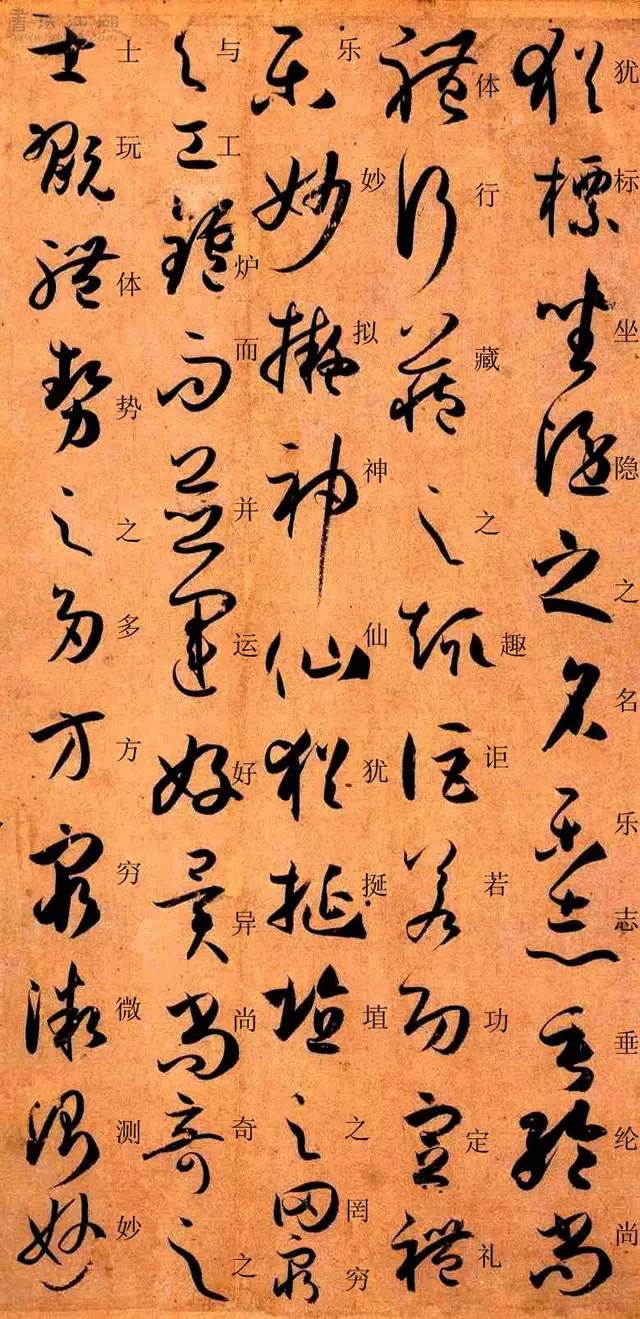 犹标坐隐之名乐志垂纶尚
体行藏之趣讵若功定礼
乐妙拟神仙犹挺埴之罔穷
与工炉而并运好异尚奇之
士玩体势之多方穷微测妙